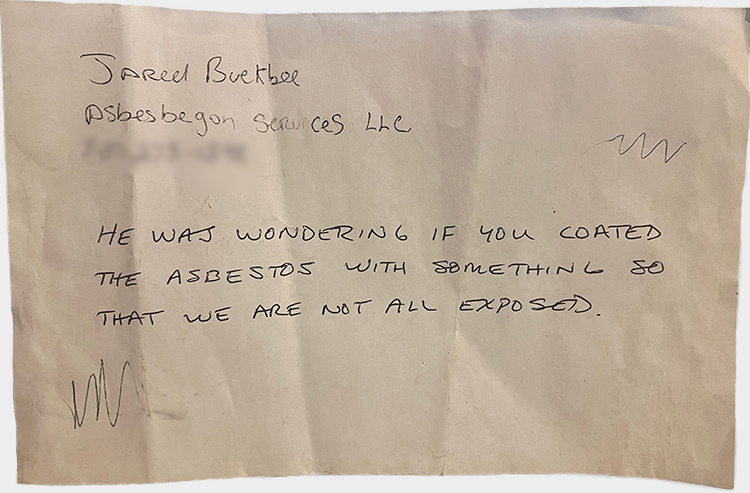 Jared Buckbee
Asbesbegon Services LLC
HE WAS WONDERING IF YOU COATED
THE ASBESTOS WITH SOMETHING SO
THAT WE ARE NOT ALL EXPOSED.